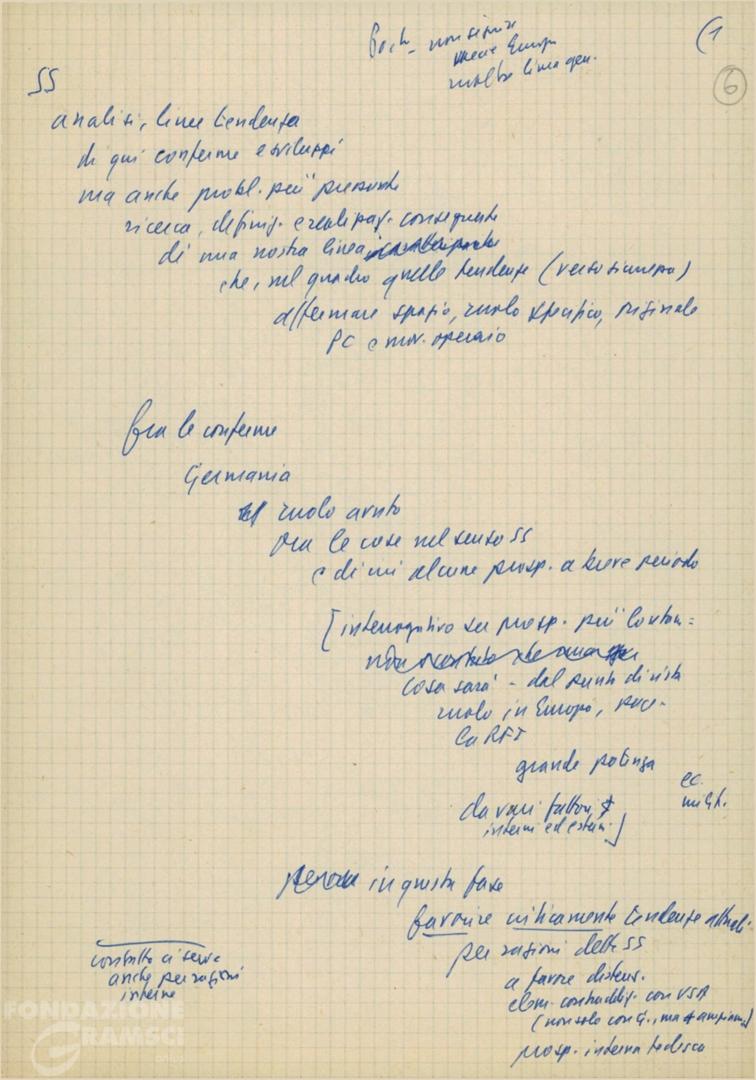 (1
6
SS
analisi, linee tendenza
di qui conferme e sviluppi
ma anche probl. più pressante
ricerca, definiz. e realizzaz. conseguente
di una nostra linea
che, nel quadro quelle tendenze (verso sicurezza)
affermare spazio, ruolo specifico, originale
PC e mov. operaio
fra le conferme
Germania
ruolo avuto
ora le cose nel senso SS
e di cui alcune prosp. a breve periodo
[interrogativo su prosp. più lontan=
cosa sarà - dal punto di vista
ruolo in Europa, pace -
la RFT
grande potenza
ec.
milit.
da vari fattori
interni ed esterni]
in questa fase
favorire criticamente tendenze attuali
per ragioni dette SS
a favore distens.
elem. contraddiz. con USA
prosp. interna tedesca
contatto ci serve
anche per ragioni
interne
FONDAZIONE
GRAMSCI